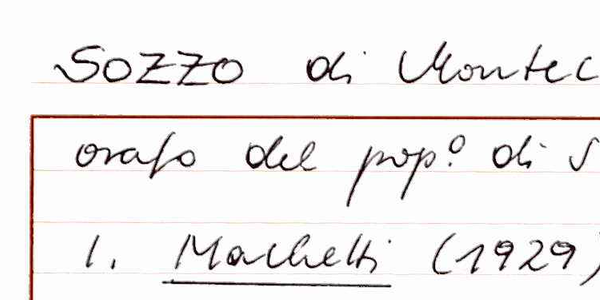 Sozzo di Montec
orafo del pop.º di S
1. Machetti (1929)